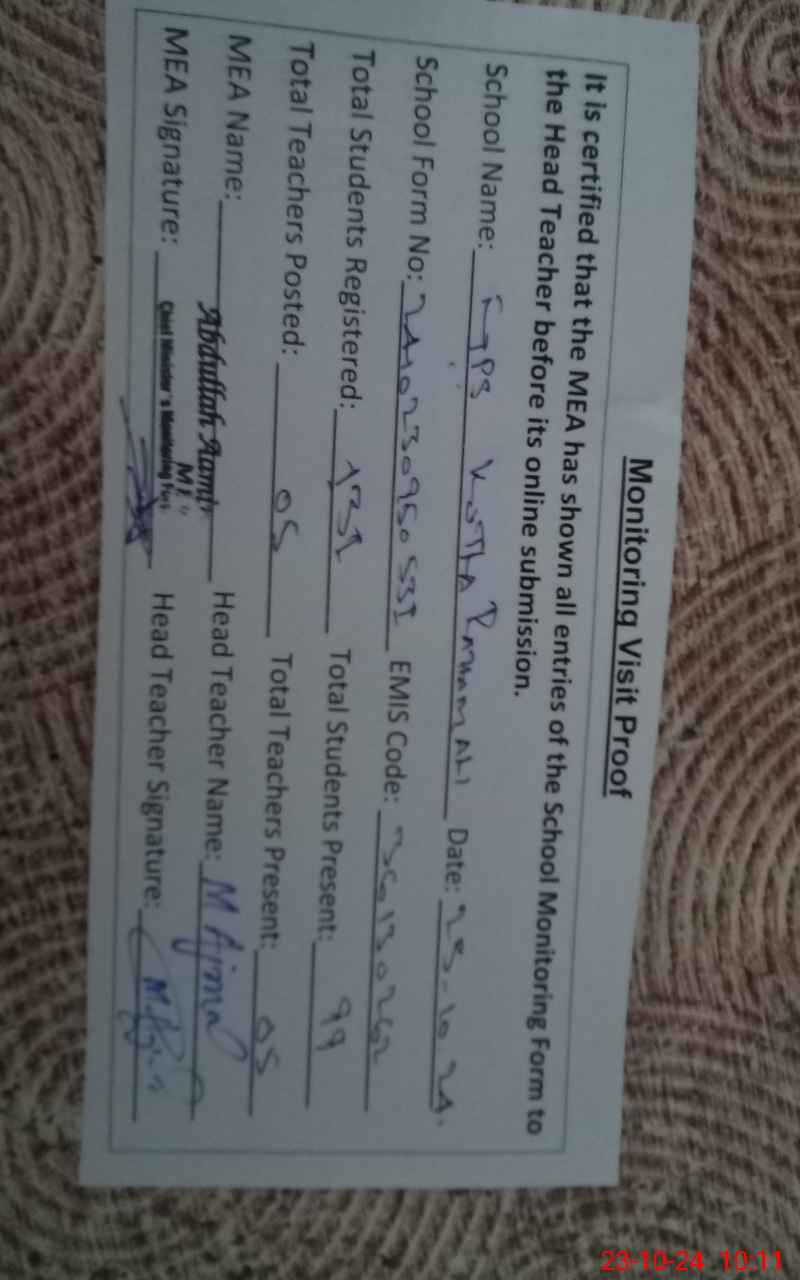 Monitoring Visit Proof
It is certified that the MEA has shown all entries of the School Monitoring Form to
the Head Teacher before its online submission.
School Name: GPS KOTLA RAHAM ALI Date: 23-10-24.
School Form No: EMIS Code:
Total Students Registered: 132 Total Students Present: 99
Total Teachers Posted: 05 Total Teachers Present: 05
MEA Name: Abdullah Aamir Head Teacher Name: M Ajmal
MEA Signature: Chief Minister's Monitoring Head Teacher Signature:
23-10-24 10:11